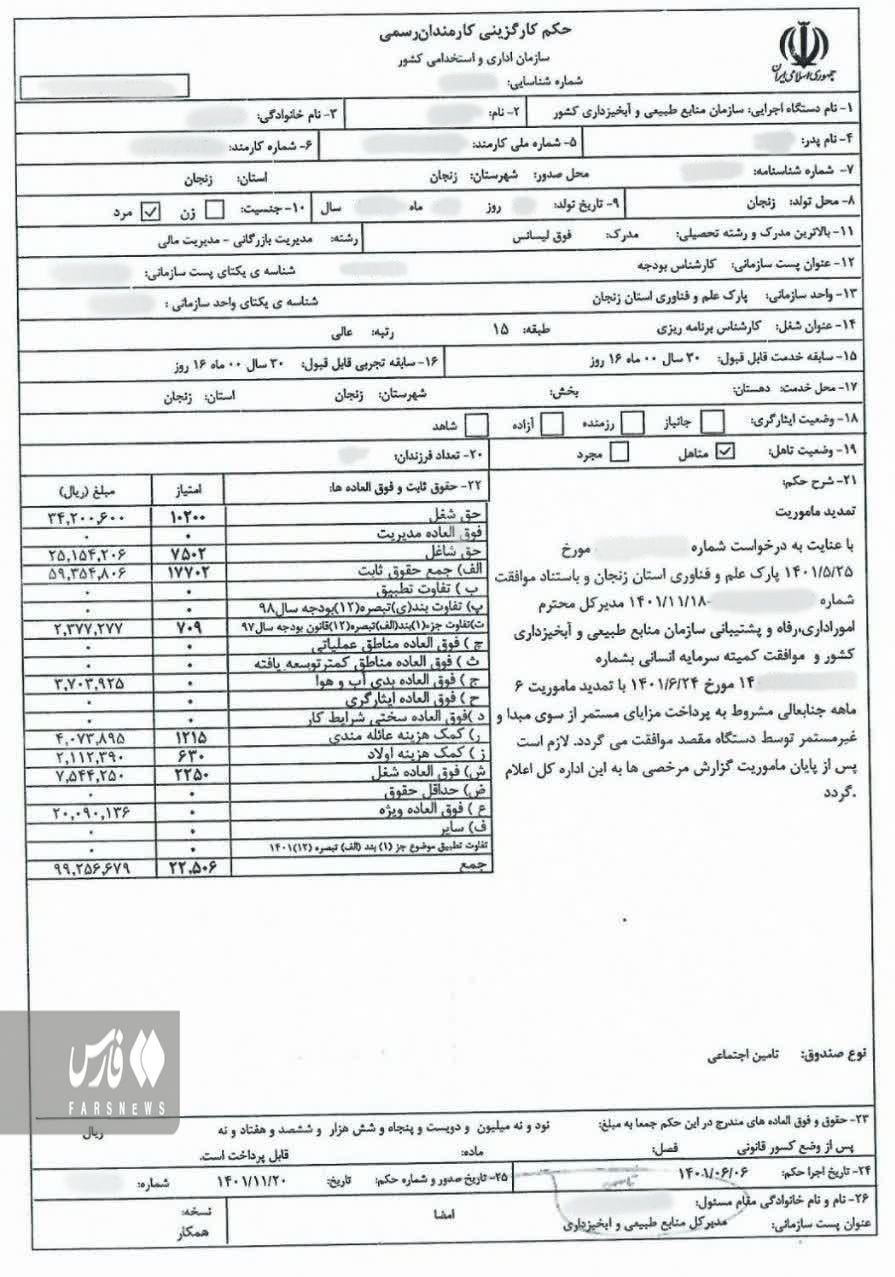 حکم کارگزینی کارمندان رسمی
سازمان اداری و استخدامی کشور
جمهوری اسلامی ایران
شماره شناسایی:
۱- نام دستگاه اجرایی: سازمان منابع طبیعی و آبخیزداری کشور ۲- نام: ۳- نام خانوادگی:
۴- نام پدر: ۵- شماره ملی کارمند: ۶- شماره کارمند:
۷- شماره شناسنامه: محل صدور: شهرستان: زنجان استان: زنجان
۸- محل تولد: زنجان ۹- تاریخ تولد: روز ماه سال ۱۰- جنسیت: زن مرد
۱۱- بالاترین مدرک و رشته تحصیلی: مدرک: فوق لیسانس رشته: مدیریت بازرگانی - مدیریت مالی
۱۲- عنوان پست سازمانی: کارشناس بودجه شناسه ی یکتای پست سازمانی:
۱۳- واحد سازمانی: پارک علم و فناوری استان زنجان شناسه ی یکتای واحد سازمانی :
۱۴- عنوان شغل: کارشناس برنامه ریزی طبقه: ۱۵ رتبه: عالی
۱۵- سابقه خدمت قابل قبول: ۳۰ سال ۰۰ ماه ۱۶ روز ۱۶- سابقه تجربی قابل قبول: ۳۰ سال ۰۰ ماه ۱۶ روز
۱۷- محل خدمت: دهستان: بخش: شهرستان: زنجان استان: زنجان
۱۸- وضعیت ایثارگری: جانباز رزمنده آزاده شاهد
۱۹- وضعیت تاهل: متاهل مجرد ۲۰- تعداد فرزندان:
۲۱- شرح حکم:
تمدید ماموریت
با عنایت به درخواست شماره مورخ
۱۴۰۱/۵/۲۵ پارک علم و فناوری استان زنجان و باستناد موافقت
شماره -۱۴۰۱/۱۱/۱۸ مدیرکل محترم
اموراداری،رفاه و پشتیبانی سازمان منابع طبیعی و آبخیزداری
کشور و موافقت کمیته سرمایه انسانی بشماره
۱۴ مورخ ۱۴۰۱/۶/۲۴ با تمدید ماموریت ۶
ماهه جنابعالی مشروط به پرداخت مزایای مستمر از سوی مبدا و
غیرمستمر توسط دستگاه مقصد موافقت می گردد. لازم است
پس از پایان ماموریت گزارش مرخصی ها به این اداره کل اعلام
گردد.
۲۲- حقوق ثابت و فوق العاده ها: امتیاز مبلغ (ریال)
حق شغل ۱۰۲۰۰ ۳۴,۲۰۰,۶۰۰
فوق العاده مدیریت ۰ ۰
حق شاغل ۷۵۰۲ ۲۵,۱۵۴,۲۰۶
الف) جمع حقوق ثابت ۱۷۷۰۲ ۵۹,۳۵۴,۸۰۶
ب ) تفاوت تطبیق ۰ ۰
پ) تفاوت بند(ی)تبصره(۱۲)بودجه سال۹۸ ۰ ۰
ت)تفاوت جزء(۱)بند(الف)تبصره(۱۲)قانون بودجه سال۹۷ ۷۰۹ ۲,۳۷۷,۲۷۷
ج ) فوق العاده مناطق عملیاتی ۰ ۰
ث ) فوق العاده مناطق کمترتوسعه یافته ۰ ۰
چ ) فوق العاده بدی آب و هوا ۰ ۳,۷۰۳,۹۲۵
ح ) فوق العاده ایثارگری ۰ ۰
د )فوق العاده سختی شرایط کار ۰ ۰
ر) کمک هزینه عائله مندی ۱۲۱۵ ۴,۰۷۳,۸۹۵
ز ) کمک هزینه اولاد ۶۳۰ ۲,۱۱۲,۳۹۰
ش) فوق العاده شغل ۲۲۵۰ ۷,۵۴۴,۲۵۰
ض) حداقل حقوق ۰ ۰
ع ) فوق العاده ویژه ۰ ۲۰,۰۹۰,۱۳۶
ف) سایر ۰ ۰
تفاوت تطبیق موضوع جز (۱) بند (الف) تبصره (۱۲)۱۴۰۱ ۰ ۰
جمع ۲۲,۵۰۶ ۹۹,۲۵۶,۶۷۹
نوع صندوق: تامین اجتماعی
فارس
FARSNEWS
۲۳- حقوق و فوق العاده های مندرج در این حکم جمعا به مبلغ: نود و نه میلیون و دویست و پنجاه و شش هزار و ششصد و هفتاد و نه ریال
پس از وضع کسور قانونی فصل: ماده: قابل پرداخت است.
۲۴- تاریخ اجرا حکم: ۱۴۰۱/۰۶/۰۶ ۲۵- تاریخ صدور و شماره حکم: تاریخ: ۱۴۰۱/۱۱/۲۰ شماره:
۲۶- نام و نام خانوادگی مقام مسئول: امضا نسخه:
عنوان پست سازمانی: مدیرکل منابع طبیعی و ابخیزداری همکار